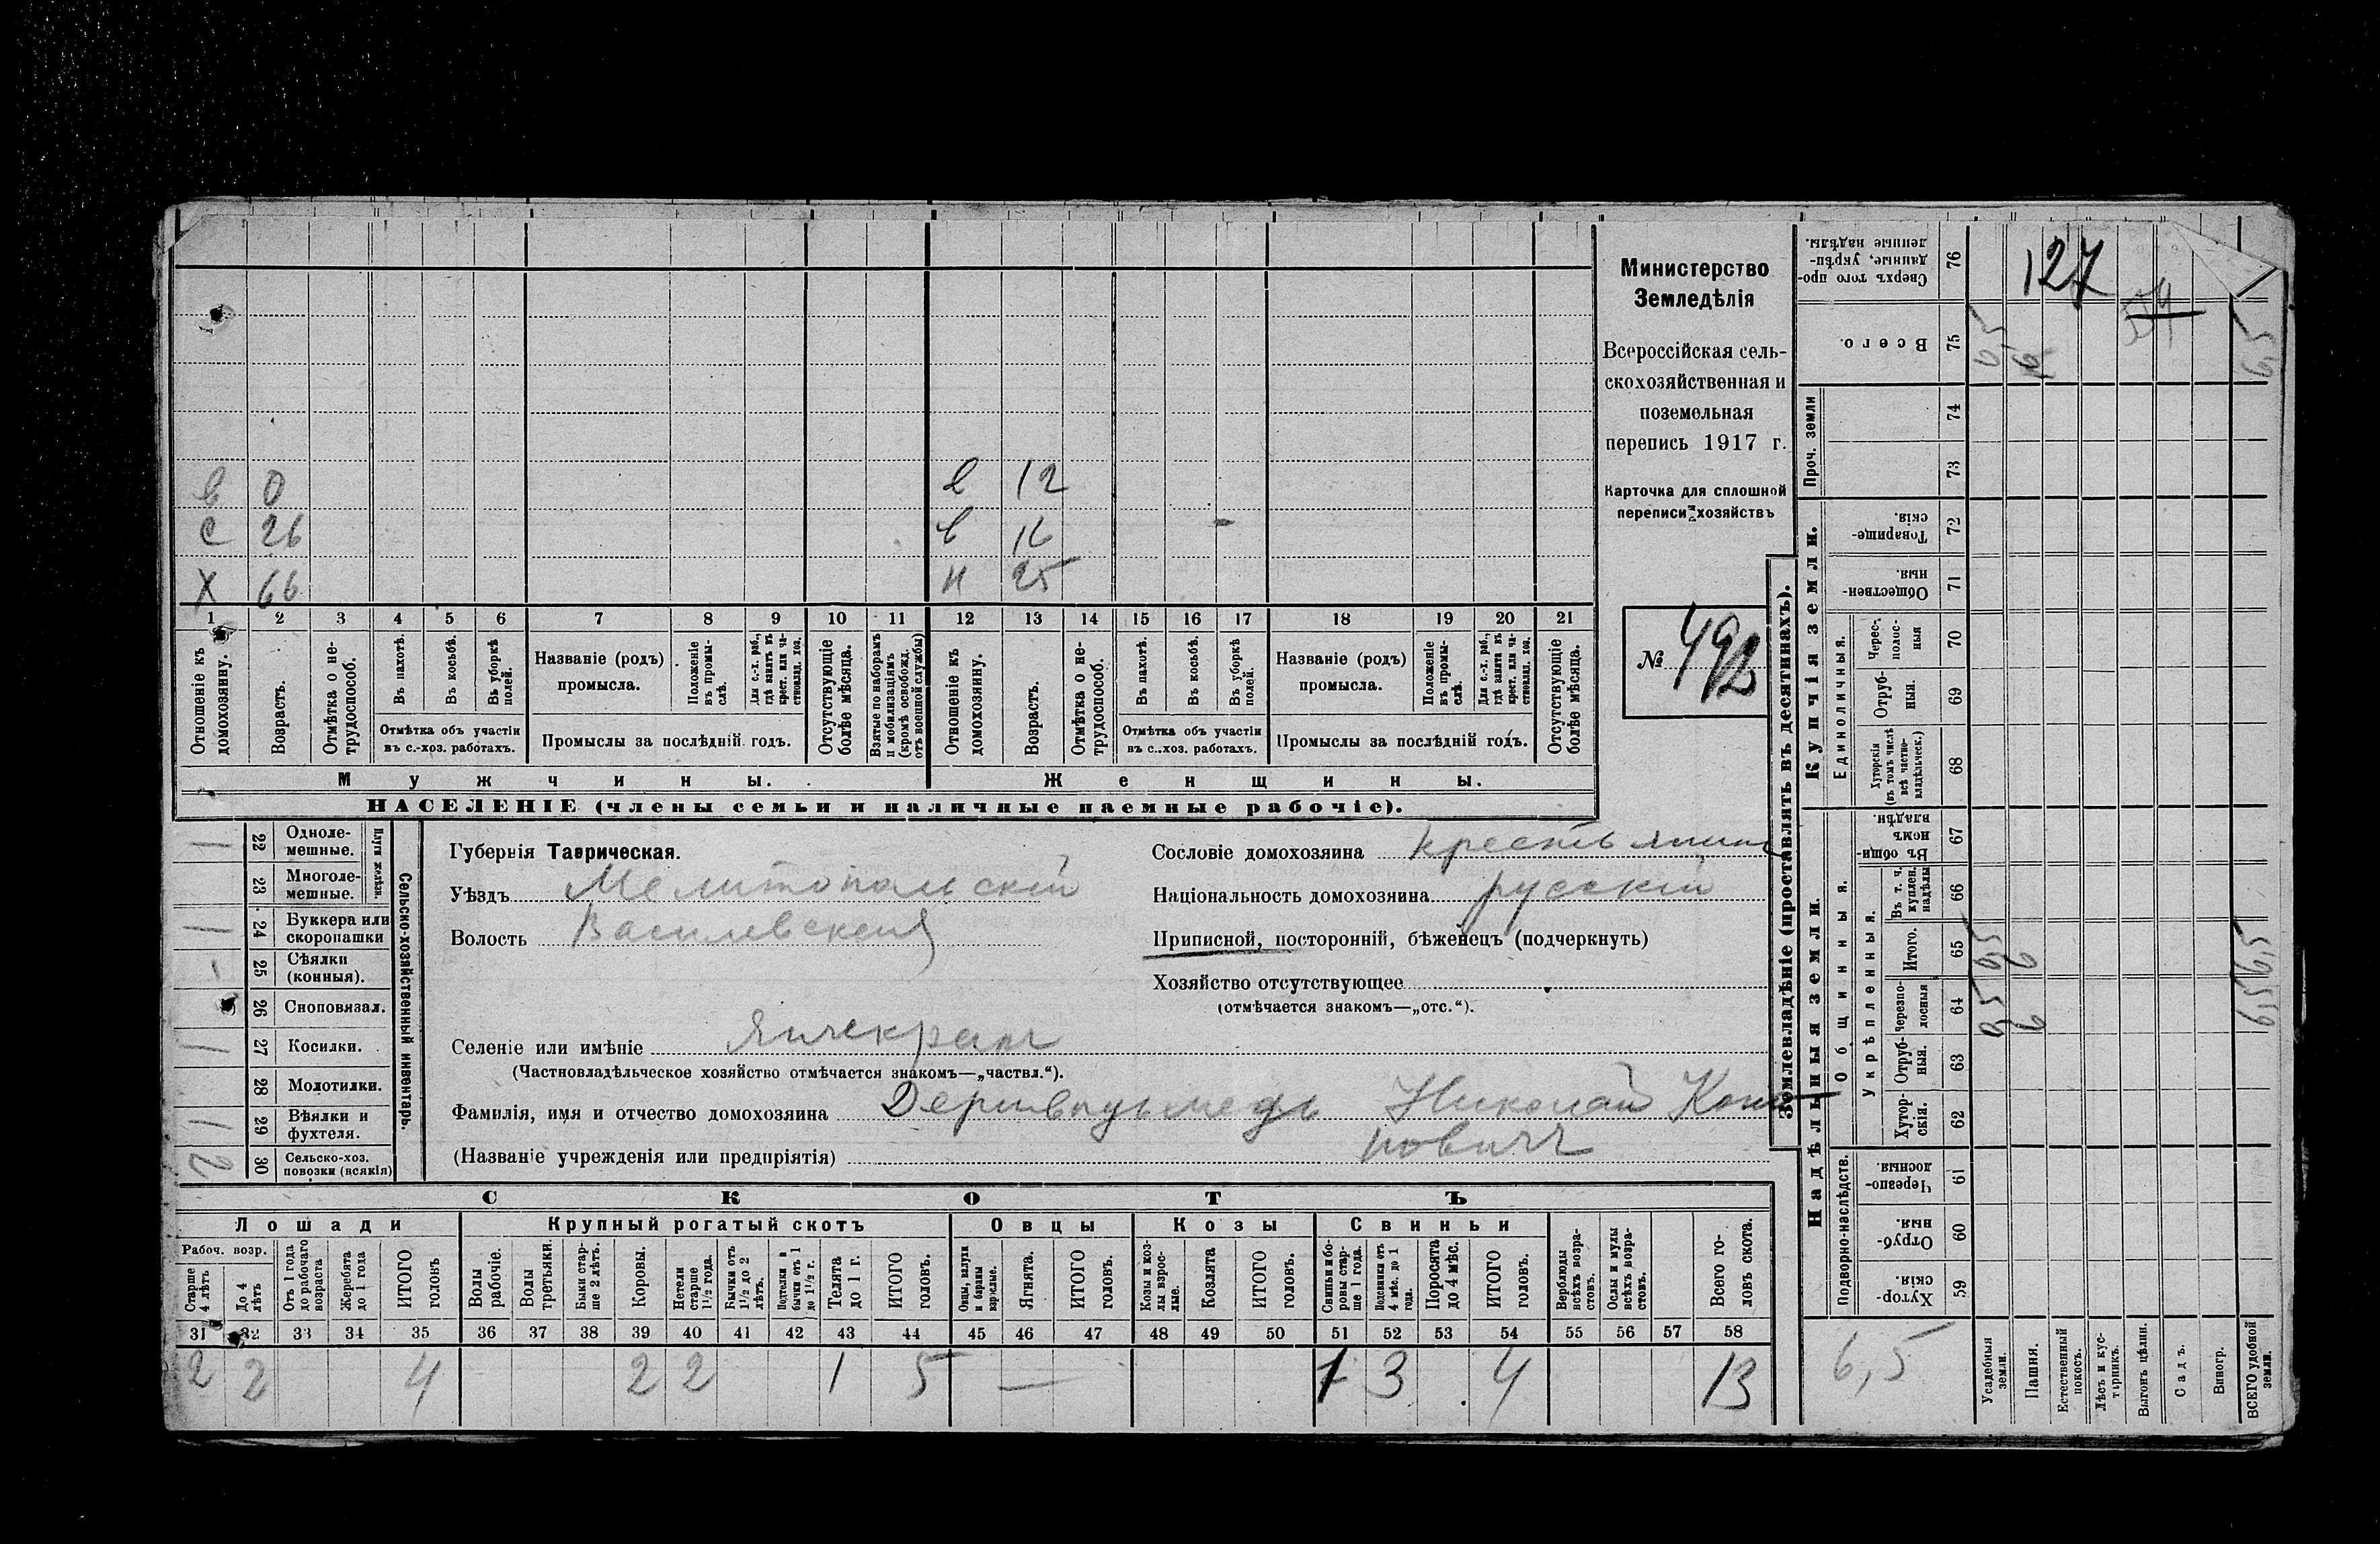 Министерство
Земледѣлія
Всероссійская сель-
скохозяйственная и
поземельная
перепись 1917 г.
Карточка для сплошной
переписи хозяйствъ
№ 492
в 0 в 12
с 26 в 16
х 66 н 25
1 2 3 4 5 6 7 8 9 10 11 12 13 14 15 16 17 18 19 20 21
Отношеніе къ домохозяину.
Возрастъ.
Отмѣтка о не-трудоспособ.
Въ пахотѣ.
Въ косьбѣ.
Въ уборкѣ полей.
Отмѣтка объ участіи
въ с.-хоз. работахъ.
Названіе (родъ)
промысла.
Положеніе въ промы-слѣ.
Для с.-х. раб., гдѣ занятъ въ крест. или ча-ствовлад. хоз.
Промыслы за послѣдній годъ.
Отсутствующіе болѣе мѣсяца.
Взятые по наборамъ и мобилизаціямъ (кромѣ освобожд. отъ военной службы)
Отношеніе къ домохозяину.
Возрастъ.
Отмѣтка о не-трудоспособ.
Въ пахотѣ.
Въ косьбѣ.
Въ уборкѣ полей.
Отмѣтка объ участіи
въ с.-хоз. работахъ.
Названіе (родъ)
промысла.
Положеніе въ промы-слѣ.
Для с.-х. раб., гдѣ занята въ крест. или ча-ствовлад. хоз.
Промыслы за послѣдній годъ.
Отсутствующіе болѣе мѣсяца.
Мужчины. Женщины.
НАСЕЛЕНІЕ (члены семьи и наличные наемные рабочіе).
Сельско-хозяйственный инвентарь.
Плуги желѣзн.
22 Одноле-мешные.
23 Многоле-мешные.
24 Буккера или скоропашки
25 Сѣялки (конныя).
26 Сноповязал.
27 Косилки.
28 Молотилки.
29 Вѣялки и фухтеля.
2 30 Сельско-хоз. повозки (всякія)
Губернія Таврическая.
Уѣздъ Мелитопольскій
Волость Василевская
Селеніе или имѣніе Янчекракъ
(Частновладѣльческое хозяйство отмѣчается знакомъ—„частвл.“).
Фамилія, имя и отчество домохозяина Николай
(Названіе учрежденія или предпріятія) новичъ
Сословіе домохозяина крестьянин
Національность домохозяина русскій
Приписной, посторонній, бѣженецъ (подчеркнуть)
Хозяйство отсутствующее
(отмѣчается знакомъ—„отс.“).
СКОТЪ
Лошади Крупный рогатый скотъ Овцы Козы Свиньи
Рабоч. возр.
Старше 4 лѣтъ
До 4 лѣтъ
Отъ 1 года до рабочаго возраста
Жеребята до 1 года
ИТОГО головъ
Волы рабочіе.
Волы третьяки.
Быки стар-ше 2 лѣтъ.
Коровы.
Нетели старше 1½ года.
Бычки отъ 1½ до 2 лѣтъ.
Подтелки и бычки отъ 1 до 1½ г.
Телята до 1 г.
ИТОГО головъ.
Овцы, валухи и бараны взрослые.
Ягнята.
ИТОГО головъ.
Козы и коз-лы взрос-лые.
Козлята
ИТОГО головъ.
Свиньи и бо-ровы стар-ше 1 года.
Подсвинки отъ 4 мѣс. до 1 года.
Поросята до 4 мѣс.
ИТОГО головъ.
Верблюды всѣхъ возра-стовъ.
Ослы и мулы всѣхъ возра-стовъ.
Всего го-ловъ скота.
31 32 33 34 35 36 37 38 39 40 41 42 43 44 45 46 47 48 49 50 51 52 53 54 55 56 57 58
2 2 4 2 2 1 5 — 1 3 4 13
Землевладѣніе (проставлять въ десятинахъ).
Надѣльныя земли. Купчія земли. Проч. земли
Подворно-наслѣдств.
Общинныя.
Укрѣпленныя.
Единоличныя.
59 Хутор-скія.
60 Отруб-ныя.
61 Черезпо-лосныя.
62 Хутор-скія.
63 Отруб-ныя.
64 Черезпо-лосныя
65 Итого.
66 Въ т. ч. куплен. надѣлы
67 Въ общи-номъ владѣн.
68 Хуторскія (въ томъ числѣ всѣ частно-владѣльческ.)
69 Отруб-ныя.
70 Черес-полос-ныя
71 Обществен-ныя.
72 Товарище-скія.
73
74
75 Всего.
76 Сверхъ того про-данные, укрѣп-ленные надѣлы.
127
6,5
Усадебныя земли.
Пашня.
Естественный покосъ.
Лѣсъ и кус-тарникъ.
Выгонъ цѣлин.
Садъ.
Виногр.
ВСЕГО удобной земли.